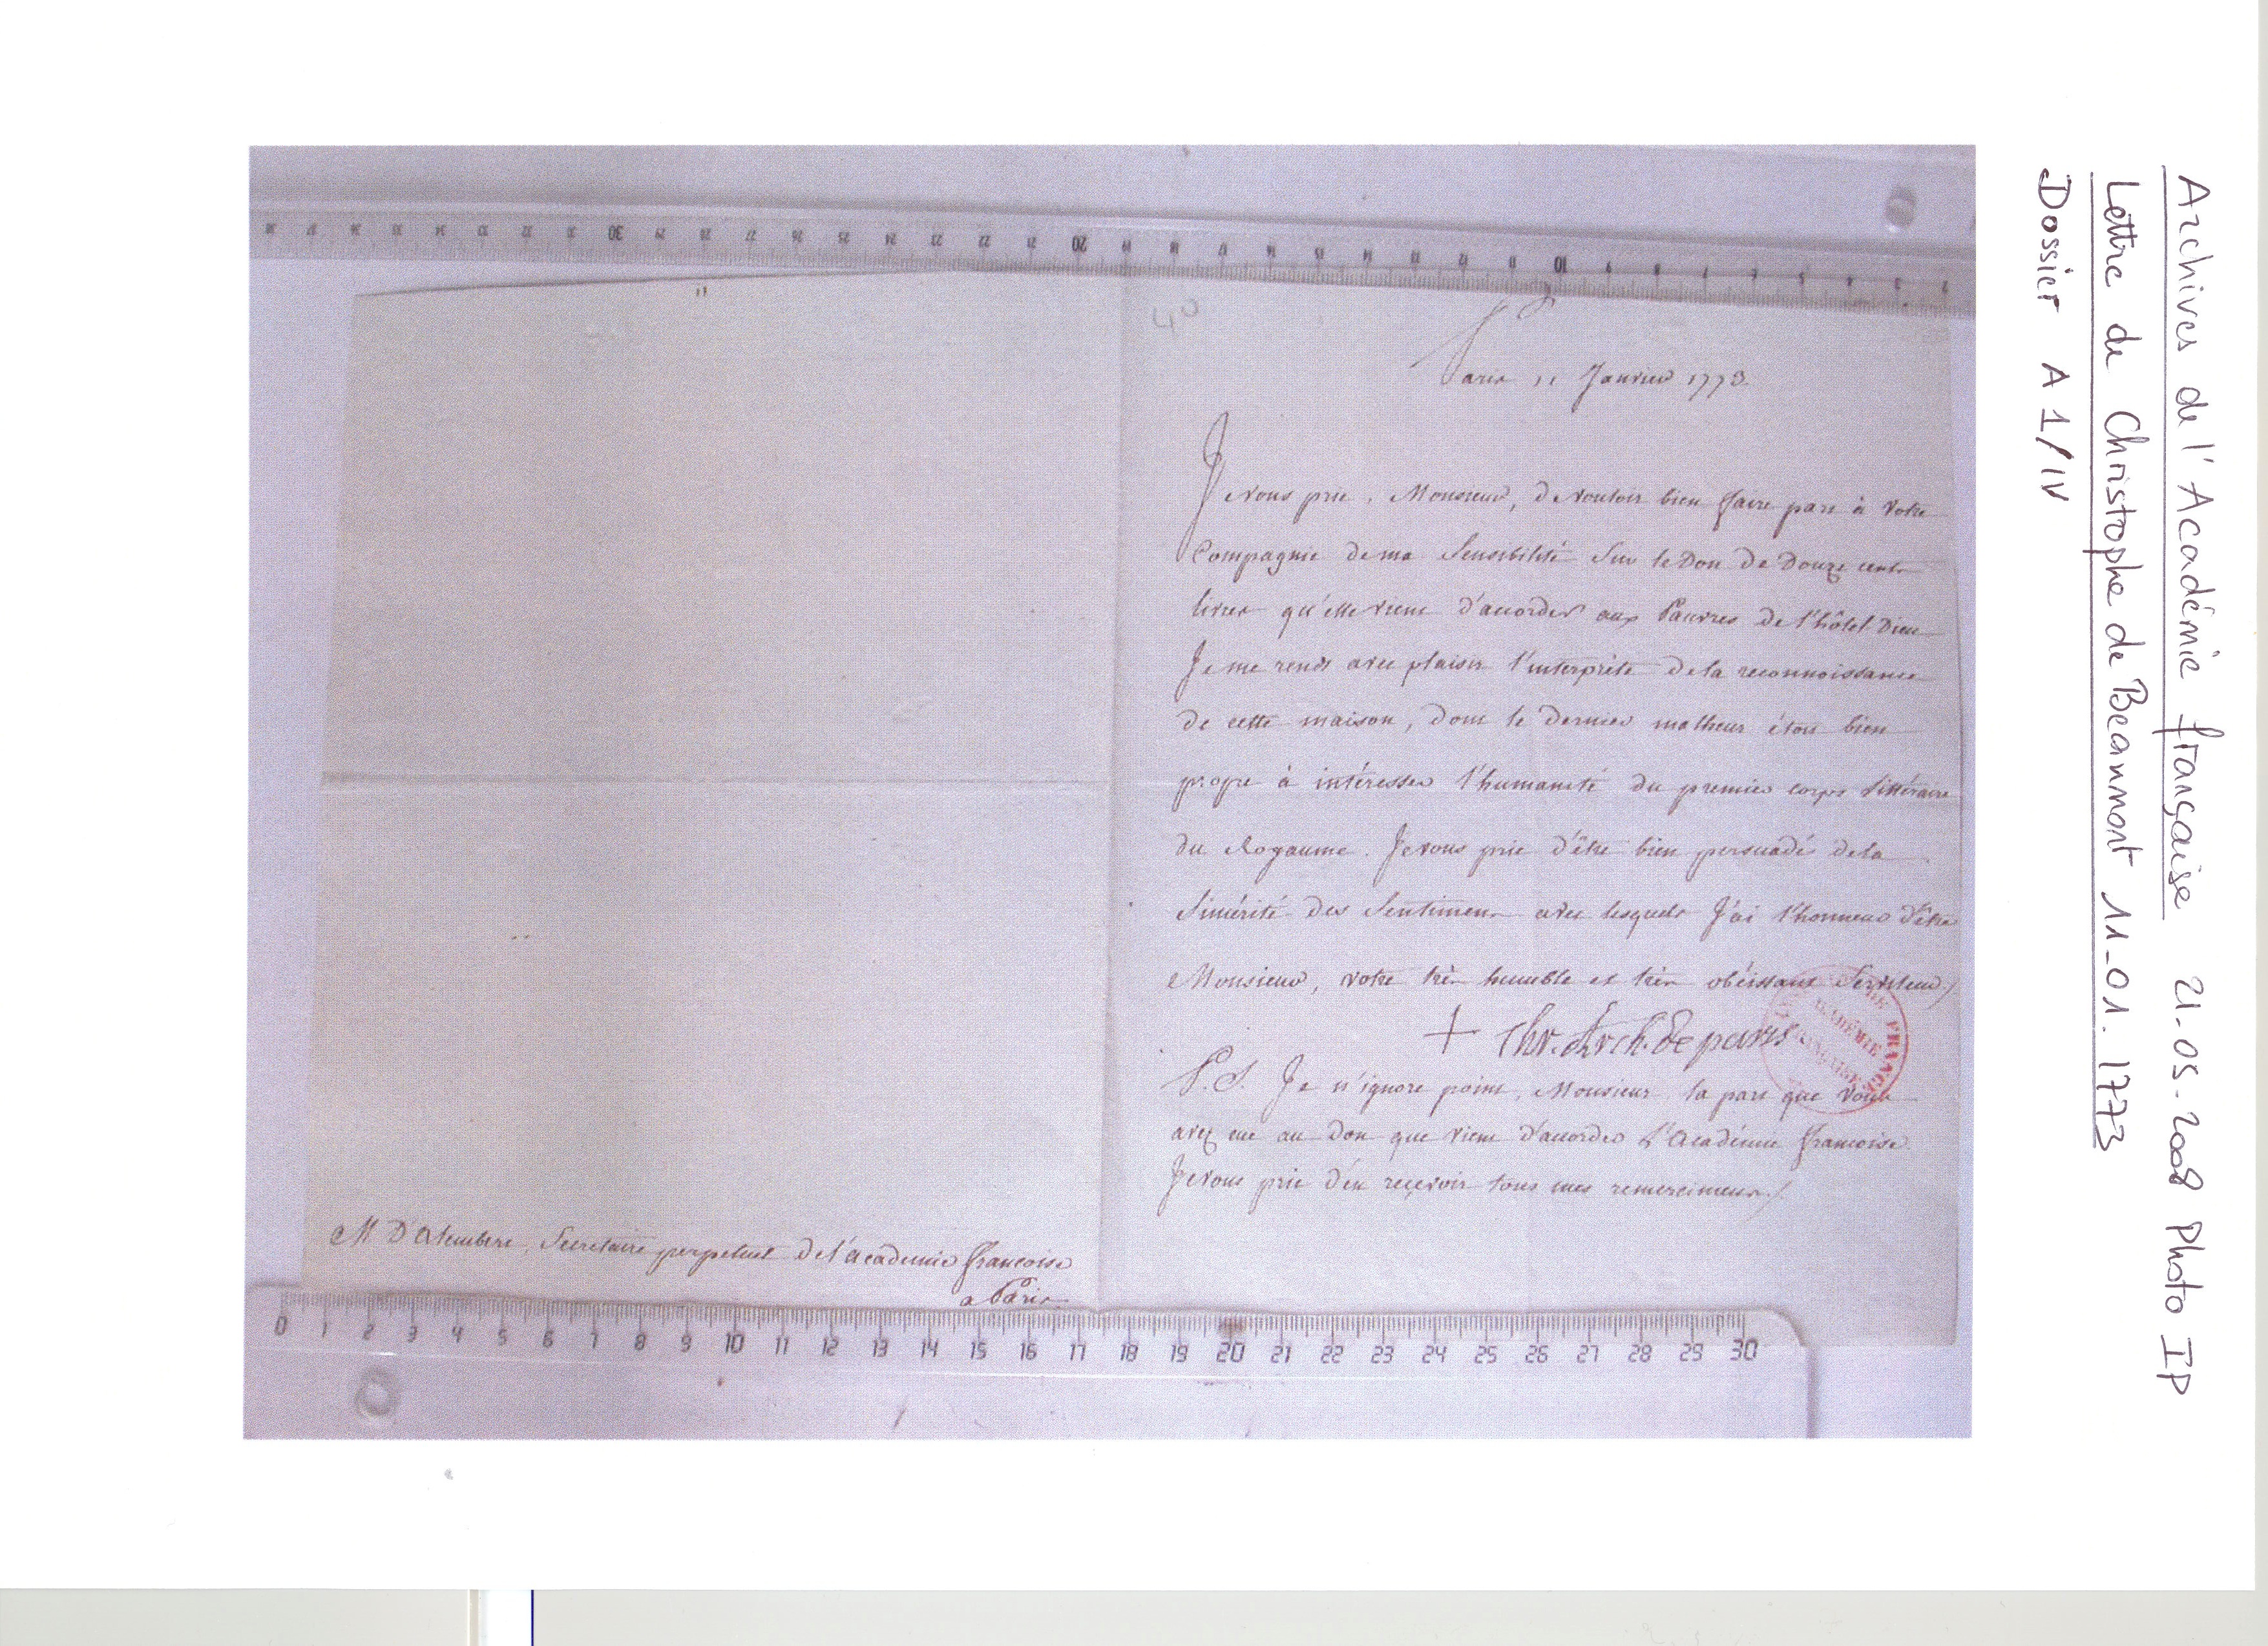 Archives de l'Académie française 21-05-2008 Photo IP
Lettre de Christophe de Beaumont 11-01.1773
Dossier A 1/IV
40
Paris 11 Janvier 1773.
Je vous prie, Monsieur, de vouloir bien faire part à votre
Compagnie de ma Sensibilité Sur le Don de Douze cents
livres qu'elle vient d'accorder aux Pauvres de l'hôtel Dieu
Je me rends avec plaisir l'interprète de la reconnoissance
de cette maison, dont le dernier malheur étoit bien
propre à intéresser l'humanité du premier corps littéraire
du Royaume. Je vous prie d'être bien persuadé de la
Sincérité des Sentimens avec lesquels J'ai l'honneur d'être
Monsieur, votre très humble et très obéissant Serviteur./
+ Chr. Arch. de paris
P.S. Je n'ignore point, Monsieur la part que vous
avez eue au Don que vient d'accorder l'Académie françoise.
Je vous prie d'en reçevoir tous mes remercimens./
M D'Alembert, Secretaire perpetuel de l'academie françoise
a Paris
ACADÉMIE
FRANCE
0 1 2 3 4 5 6 7 8 9 10 11 12 13 14 15 16 17 18 19 20 21 22 23 24 25 26 27 28 29 30